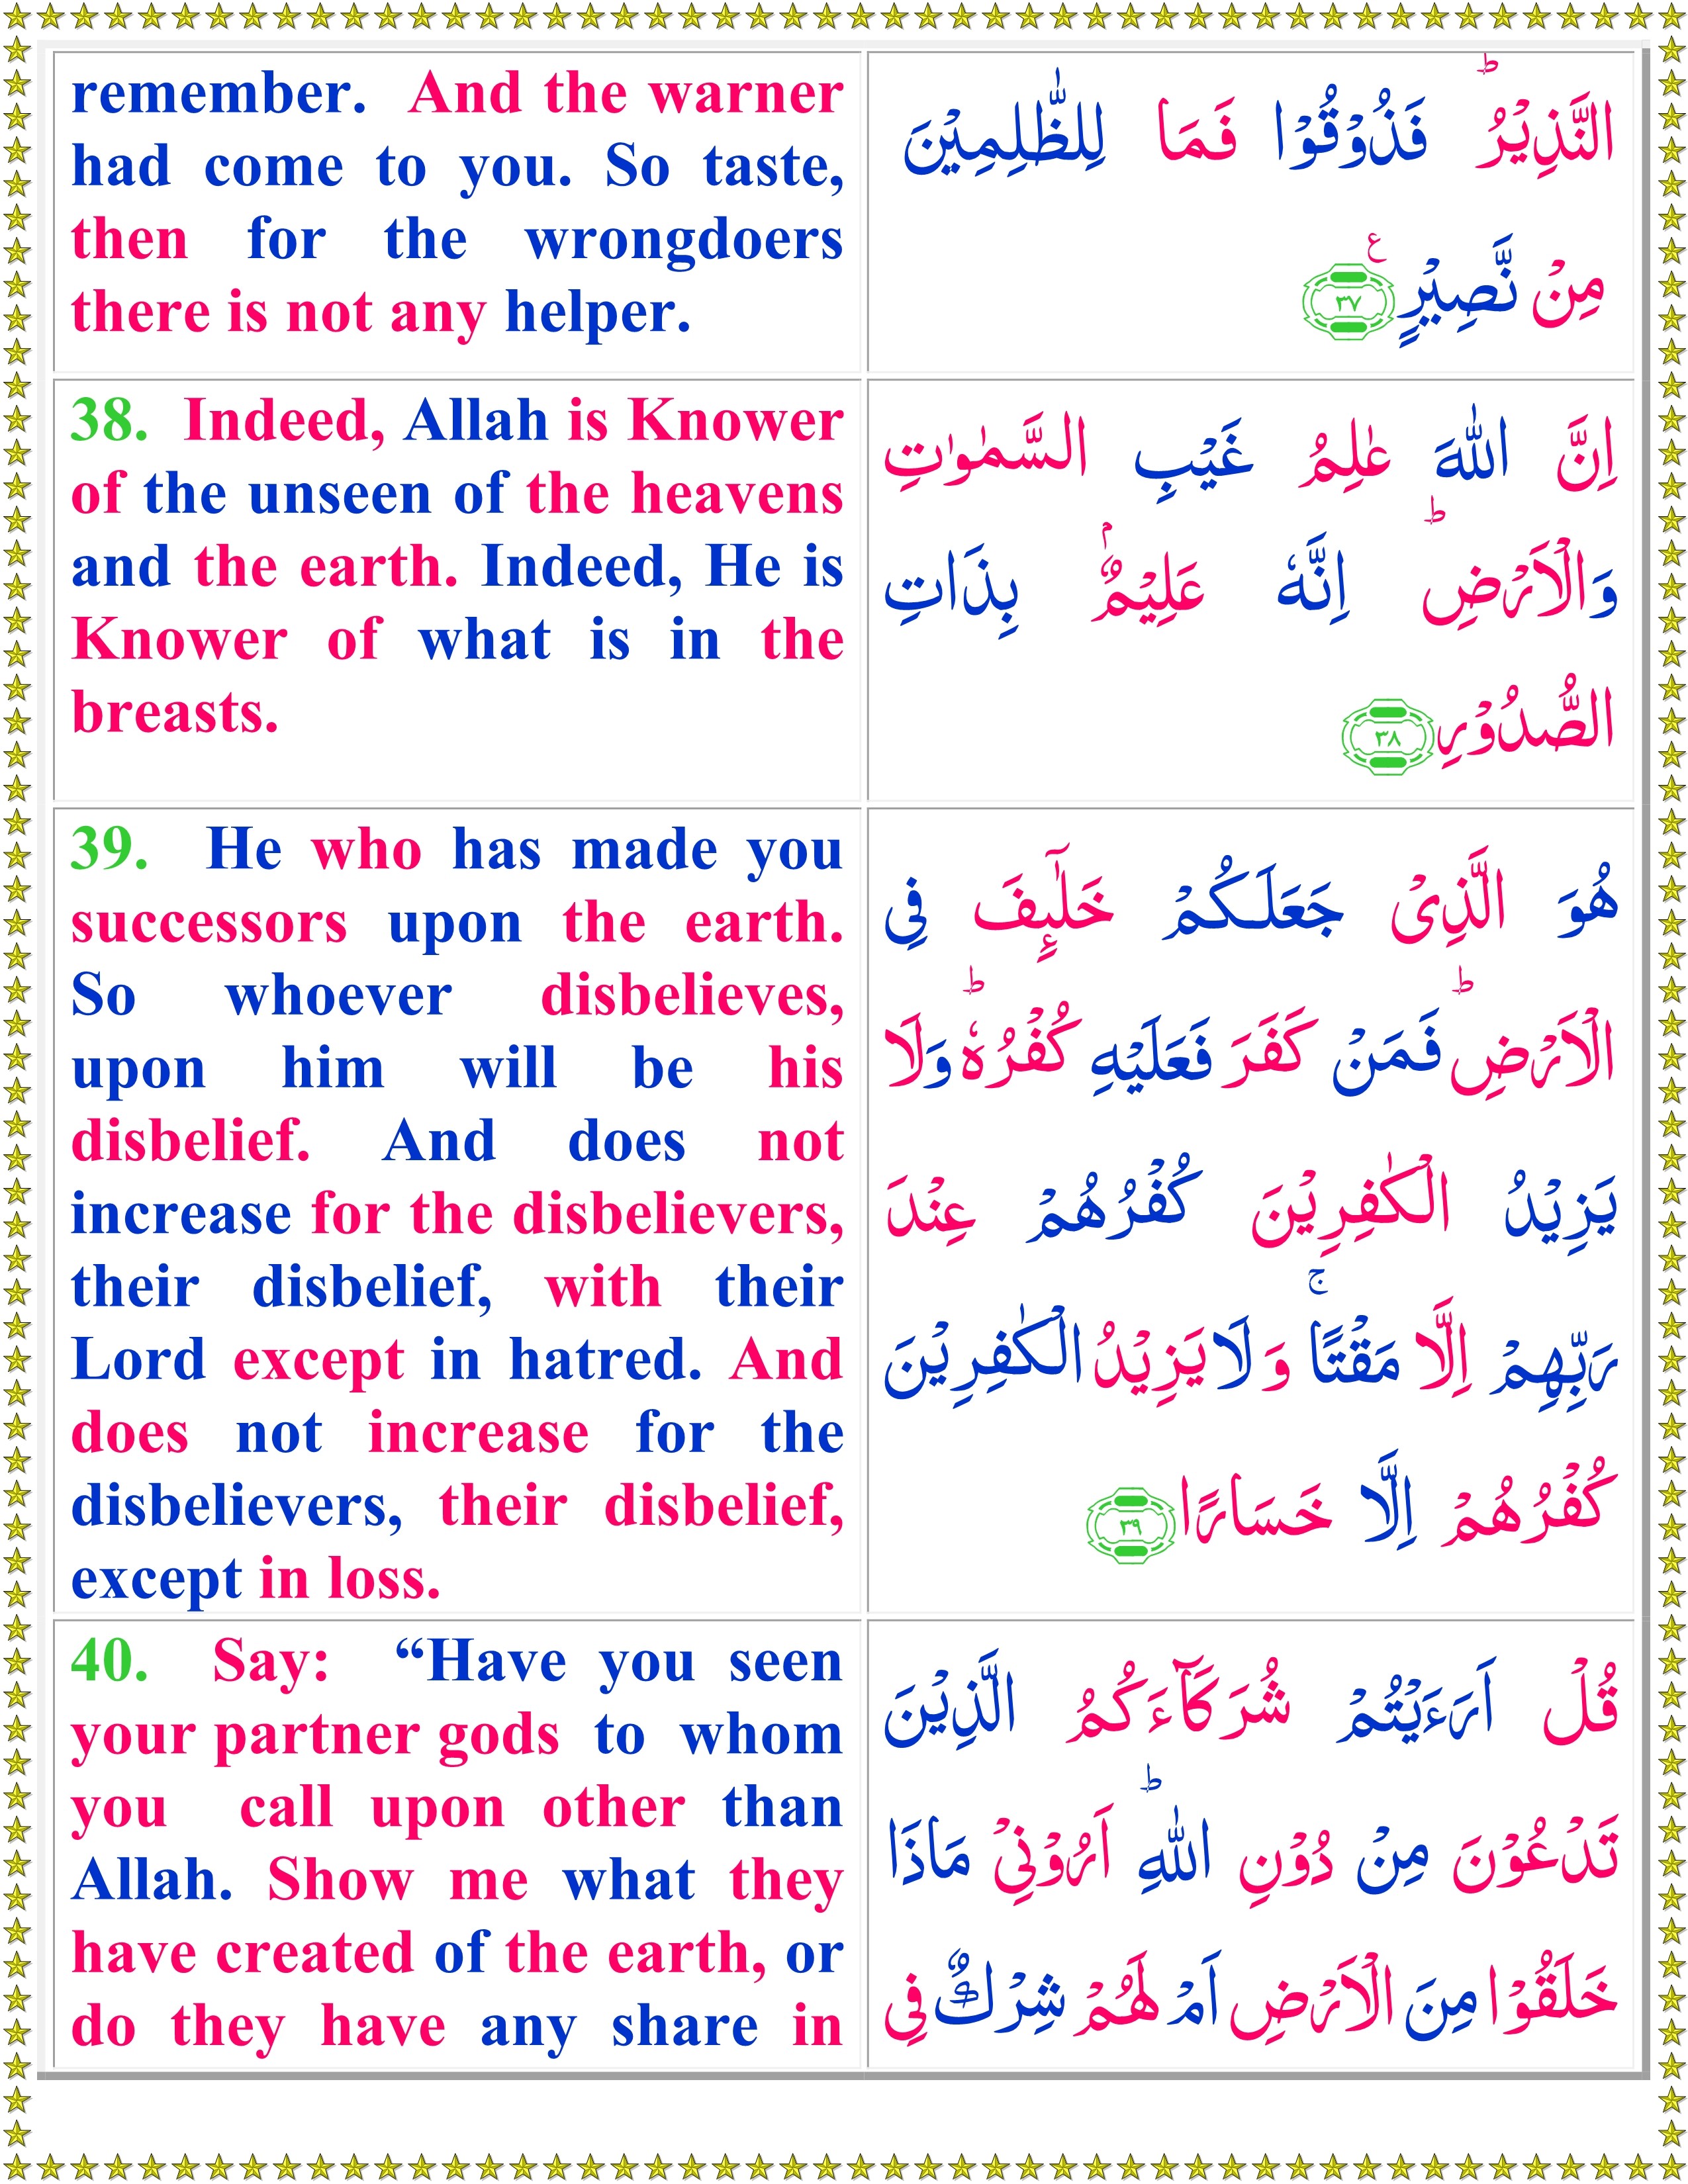 remember. And the warner
had come to you. So taste,
then for the wrongdoers
there is not any helper.
النَّذِيْرُ ؕ فَذُوْقُوْا فَمَا لِلظّٰلِمِيْنَ
مِنْ نَّصِيْرٍ ࣖ ٣٧
38. Indeed, Allah is Knower
of the unseen of the heavens
and the earth. Indeed, He is
Knower of what is in the
breasts.
اِنَّ اللّٰهَ عٰلِمُ غَيْبِ السَّمٰوٰتِ
وَالْاَرْضِ ؕ اِنَّهٗ عَلِيْمٌۢ بِذَاتِ
الصُّدُوْرِ ٣٨
39. He who has made you
successors upon the earth.
So whoever disbelieves,
upon him will be his
disbelief. And does not
increase for the disbelievers,
their disbelief, with their
Lord except in hatred. And
does not increase for the
disbelievers, their disbelief,
except in loss.
هُوَ الَّذِىْ جَعَلَـكُمْ خَلٰٓٮِٕفَ فِى
الْاَرْضِ ؕ فَمَنْ كَفَرَ فَعَلَيْهِ كُفْرُهٗ ؕ وَلَا
يَزِيْدُ الْـكٰفِرِيْنَ كُفْرُهُمْ عِنْدَ
رَبِّهِمْ اِلَّا مَقْتًا ۚ وَ لَا يَزِيْدُ الْـكٰفِرِيْنَ
كُفْرُهُمْ اِلَّا خَسَارًا ٣٩
40. Say: “Have you seen
your partner gods to whom
you call upon other than
Allah. Show me what they
have created of the earth, or
do they have any share in
قُلْ اَرَءَيْتُمْ شُرَكَآءَكُمُ الَّذِيْنَ
تَدْعُوْنَ مِنْ دُوْنِ اللّٰهِ ؕ اَرُوْنِىْ مَاذَا
خَلَقُوْا مِنَ الْاَرْضِ اَمْ لَهُمْ شِرْكٌ فِى